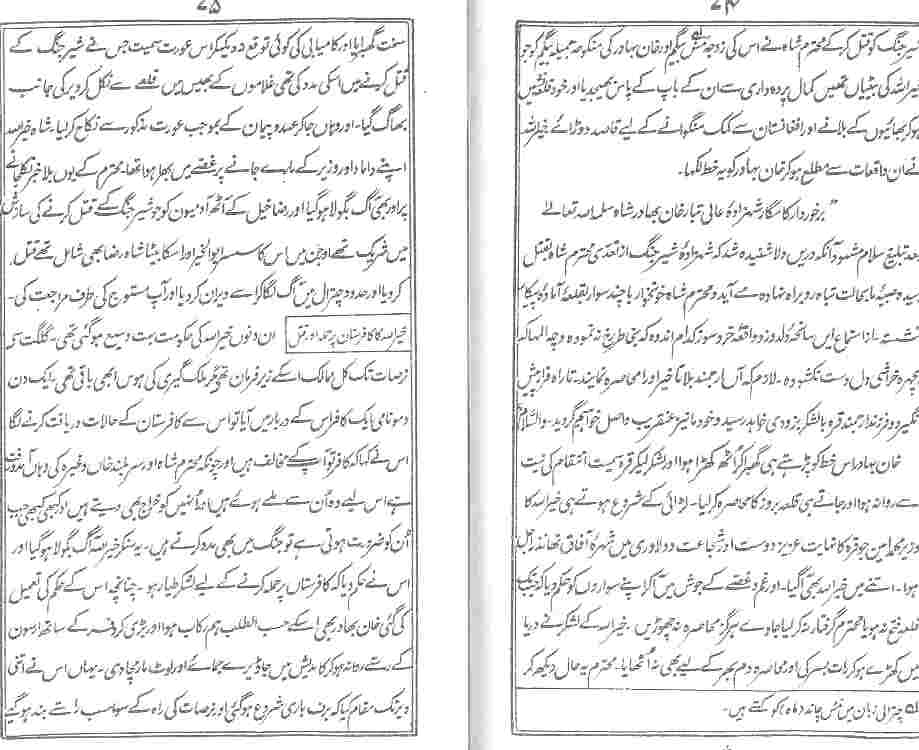 ۷۴
شیر جنگ کو قتل کر کے محترم شاہ نے اس کی زوجہ مس بیگم اور خان بہادر کی منکوحہ جمیلہ بیگم کو جو
خیر اللہ کی بیٹیاں تھیں کمال پردہ داری سے ان کے باپ کے پاس بھیجدیا اور خود قلعہ نشین
ہوکر بھائیوں کے بلانے اور افغانستان سے کمک منگوانے کے لیے قاصد دوڑائے خیر اللہ
نے ان واقعات سے مطلع ہو کر خان بہادر کو یہ خط لکھا۔
"برخوردار کامگار شہزادہ عالی تبار خان بہادر شاہ سلمہ اللہ تعالےٰ
بعد تبلیغ سلام مشہود آنکہ دریں ولا شنیدہ شد کہ شہزادہ شیر جنگ از تعدی محترم شاہ بقتل
رسیدہ بحالت تباہ رو براہ نہادہ مے آید و محترم شاہ خونخوار با چند سوار بقلعہ آمادہ پیکار
است۔ از استماع ایں سانحہ دلدوز و واقعہ خرد سوز کدام اندوہ کہ بنی طرح نہ نمودہ و چہ الم کہ
بچہرہ خراشی دل دست نکشودہ۔ لازم کہ آں ارجمند بلا تاخیر اورا محاصرہ نمایند۔ تا راہ فرار پیش
نگیرد و فرزند ارجمند قرہ با لشکر بزودی خواہد رسید و خود ما نیز عنقریب واصل خواہیم گردید۔ والسلام
خان بہادر اس خط کو پڑھتے ہی گھبرا کر اٹھ کھڑا ہوا اور لشکر لیکر قرہ سمیت انتقام کی نیت
سے روانہ ہوا اور جاتے ہی قلعہ بروز کا محاصرہ کر لیا۔ لڑائی کے شروع ہوتے ہی خیر اللہ کا
وزیر محمد امین جو قرہ کا نہایت عزیز دوست اور شجاعت و دلاوری میں شہرہ آفاق تھا نذر اجل
ہوا۔ اتنے میں خیر اللہ بھی آگیا۔ اور غم و غصے کے جوش میں آکر اپنے سواروں کو حکم دیا کہ جبتک
قلعہ فتح نہ ہو یا محترم گرفتار نہ کر لیا جاوے ہرگز محاصرہ نہ چھوڑیں۔ خیر اللہ کے لشکر نے دریا
میں کھڑے ہو کر رات بسر کی اور محاصرہ دم بھر کے لیے بھی نہ اٹھایا۔ محترم یہ حال دیکھ کر
لہ چترالی زبان میں مس چاند (ماہ) کو کہتے ہیں۔
۷۵
سخت گھبرایا اور کامیابی کی کوئی توقع نہ دیکھ کر اس عورت سمیت جس نے شیر جنگ کے
قتل کرنے میں اسکی مدد کی تھی غلاموں کے بھیس میں قلعے سے نکل کر دیر کی جانب
بھاگ گیا۔ اور وہاں جا کر عہد و پیمان کے بموجب عورت مذکور سے نکاح کر لیا۔ شاہ خیر اللہ
اپنے داماد اور وزیر کے مارے جانے پر غصے میں بھرا ہوا تھا۔ محترم کے یوں بلا خبر نکل جانے
پر اور بھی آگ بگولا ہو گیا اور رضا خیل کے آٹھ آدمیوں کو جو شیر جنگ کے قتل کرنے کی سازش
میں شریک تھے اور جن میں اس کا سسر ابو الخیر اور اسکا بیٹا شاہ رضا بھی شامل تھے قتل
کر دیا اور حدود چترال میں آگ لگا کر اسے ویران کر دیا اور آپ مستوج کی طرف مراجعت کی۔
خیر اللہ کا کافرستان پر حملہ اور قتل
ان دنوں خیر اللہ کی حکومت بہت وسیع ہو گئی تھی۔ گلگت سے
نرصات تک کل ممالک اسکے زیر فرمان تھے مگر ملک گیری کی ہوس ابھی باقی تھی۔ ایک دن
دمو نامی ایک کافر اس کے دربار میں آیا تو اس سے کافرستان کے حالات دریافت کرنے لگا
اس نے کہا کہ کافر تو آپ کے مخالف ہیں اور چونکہ محترم شاہ اور سربلند خاں وغیرہ کی وہاں آمد و رفت
ہے اس لیے وہ ان سے ملے ہوئے ہیں اور انہیں کو خراج بھی دیتے ہیں اور کبھی کبھی جب
ان کو ضرورت ہوتی ہے تو جنگ میں بھی مدد کرتے ہیں۔ یہ سنکر خیر اللہ آگ بگولا ہو گیا اور
اس نے حکم دیا کہ کافرستان پر حملہ کرنے کے لیے لشکر طیار ہو۔ چنانچہ اس کے حکم کی تعمیل
کی گئی خان بہادر بھی اسکے حسب الطلب ہم رکاب ہوا اور بڑی کروفر کے ساتھ ارسون
کے رستے روانہ ہو کر کامدیش میں جا ڈیرے جمائے اور لوٹ مار مچا دی۔ یہاں اس نے اتنی
دیر تک مقام کیا کہ برف باری شروع ہو گئی اور نرصات کی راہ کے سوا سب راستے بند ہو گئے